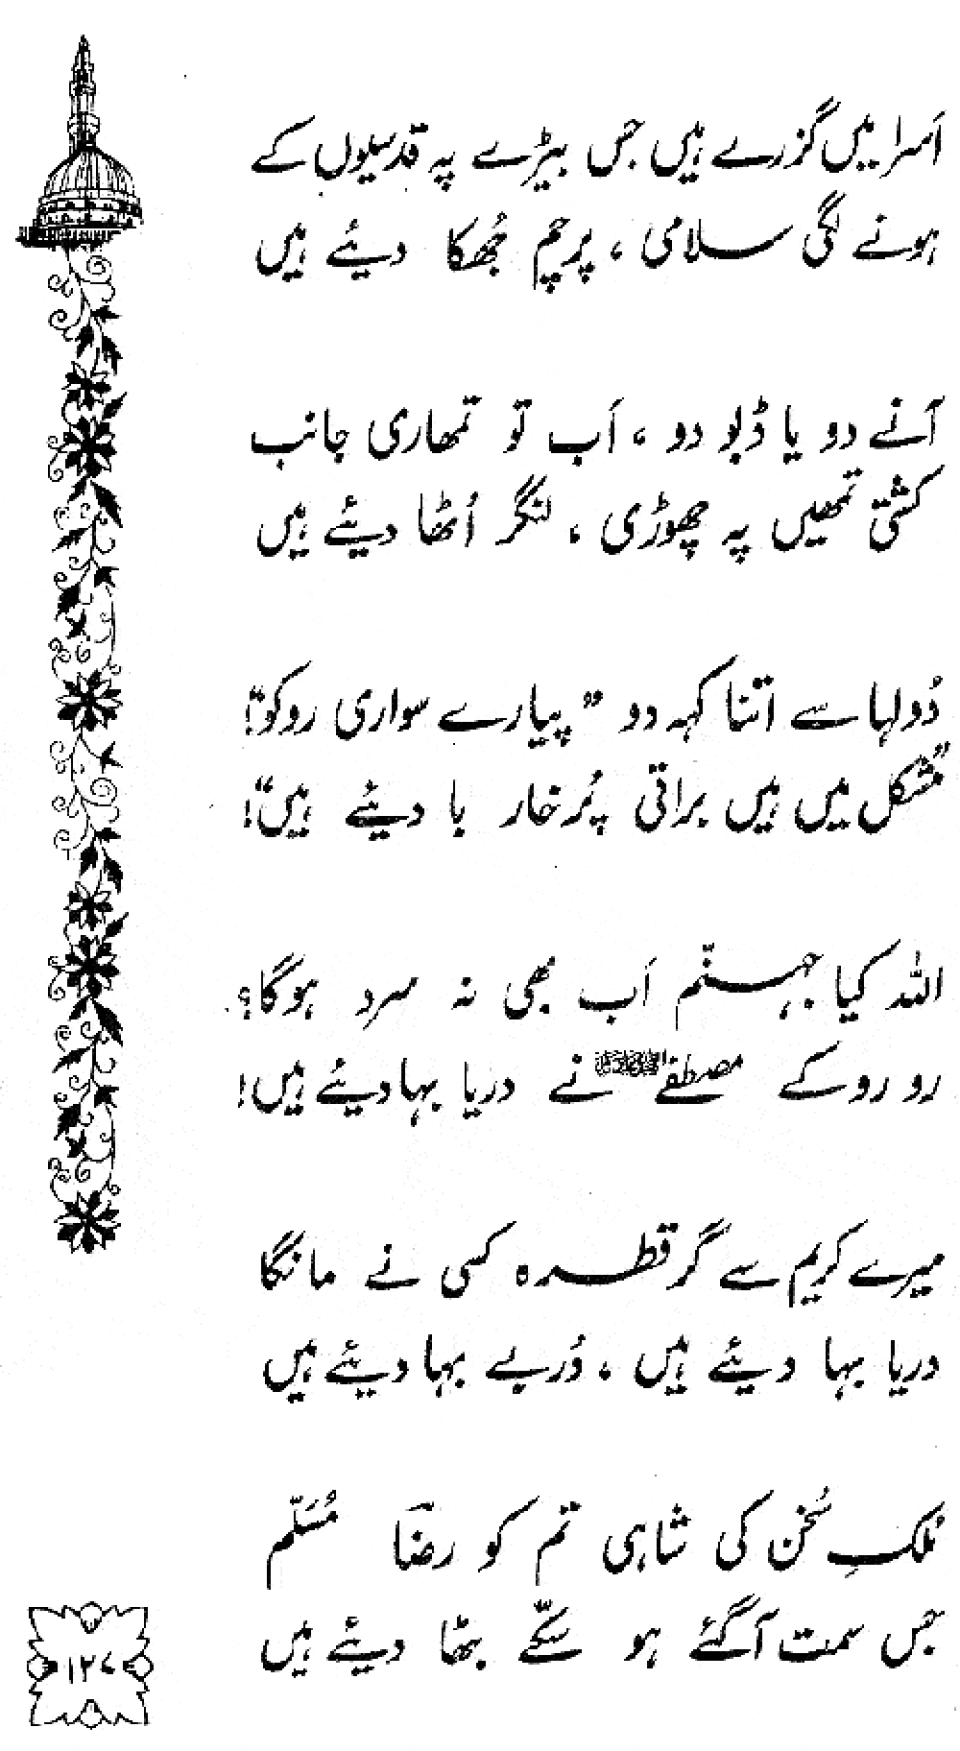 اَسرا میں گزرے ہیں جس بیڑے پہ قدسیوں کے
ہونے لگی سلامی ، پرچم جُھکا دیئے ہیں
آنے دو یا ڈبو دو ، اَب تو تمھاری جانب
کشتی تمھیں پہ چھوڑی ، لنگر اُٹھا دیئے ہیں
دُولہا سے اتنا کہہ دو ”پیارے سواری روکو“!
”مُشکل میں ہیں براتی پُرخار با دیئے ہیں“!
اللہ کیا جہنّم اَب بھی نہ سرد ہوگا؟
رو رو کے مصطفےٰ ﷺ نے دریا بہا دیئے ہیں!
میرے کریم سے گر قطرہ کسی نے مانگا
دریا بہا دیئے ہیں ، دُربے بہا دیئے ہیں
مُلکِ سُخن کی شاہی تم کو رضاؔ مُسَلّم
جس سمت آگئے ہو سکّے بٹھا دیئے ہیں
۱۲۷